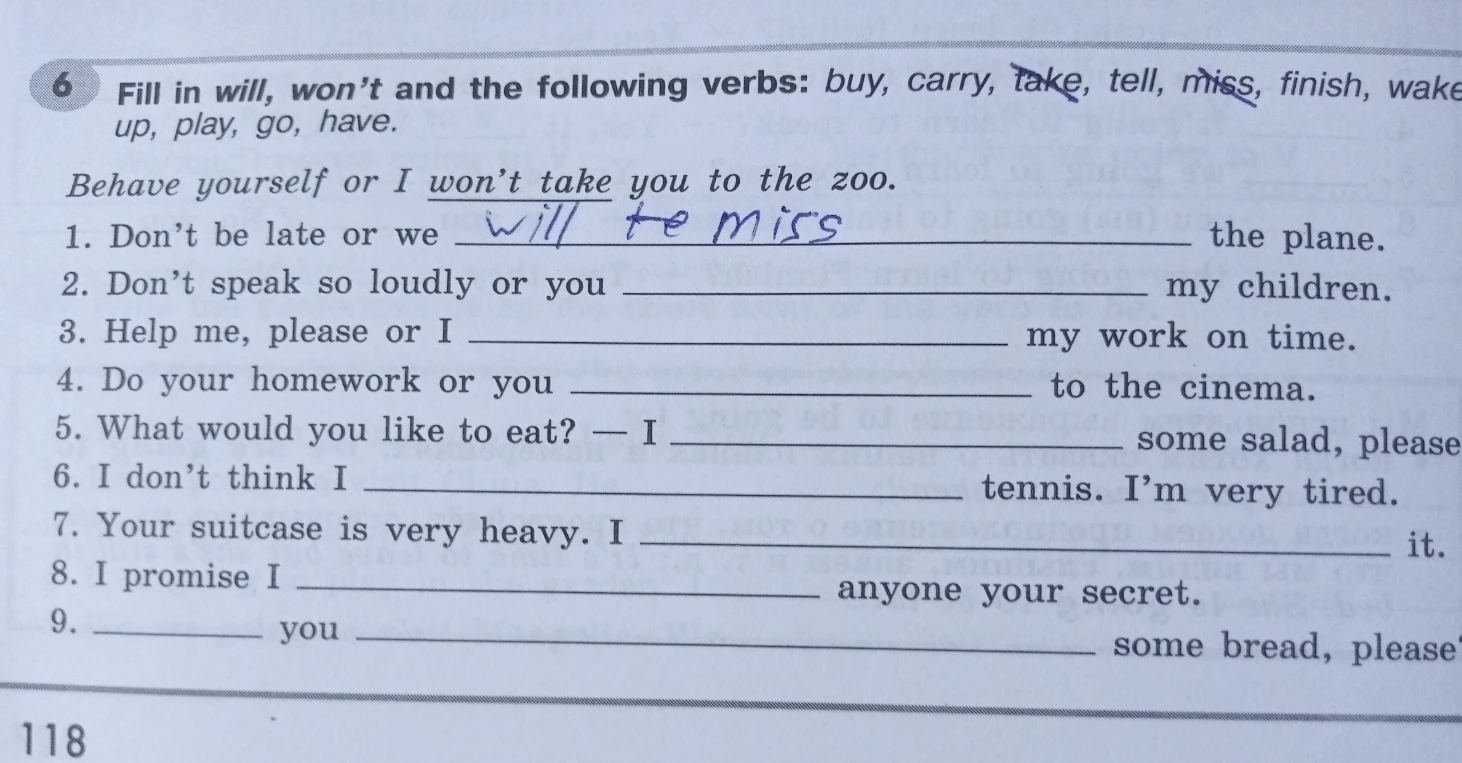 6 Fill in will, won't and the following verbs: buy, carry, take, tell, miss, finish, wake
up, play, go, have.
Behave yourself or I won't take you to the zoo.
1. Don't be late or we will te miss the plane.
2. Don't speak so loudly or you ____ my children.
3. Help me, please or I ____ my work on time.
4. Do your homework or you ____ to the cinema.
5. What would you like to eat? — I ____ some salad, please
6. I don't think I ____ tennis. I'm very tired.
7. Your suitcase is very heavy. I ____ it.
8. I promise I ____ anyone your secret.
9. ____ you ____ some bread, please
118